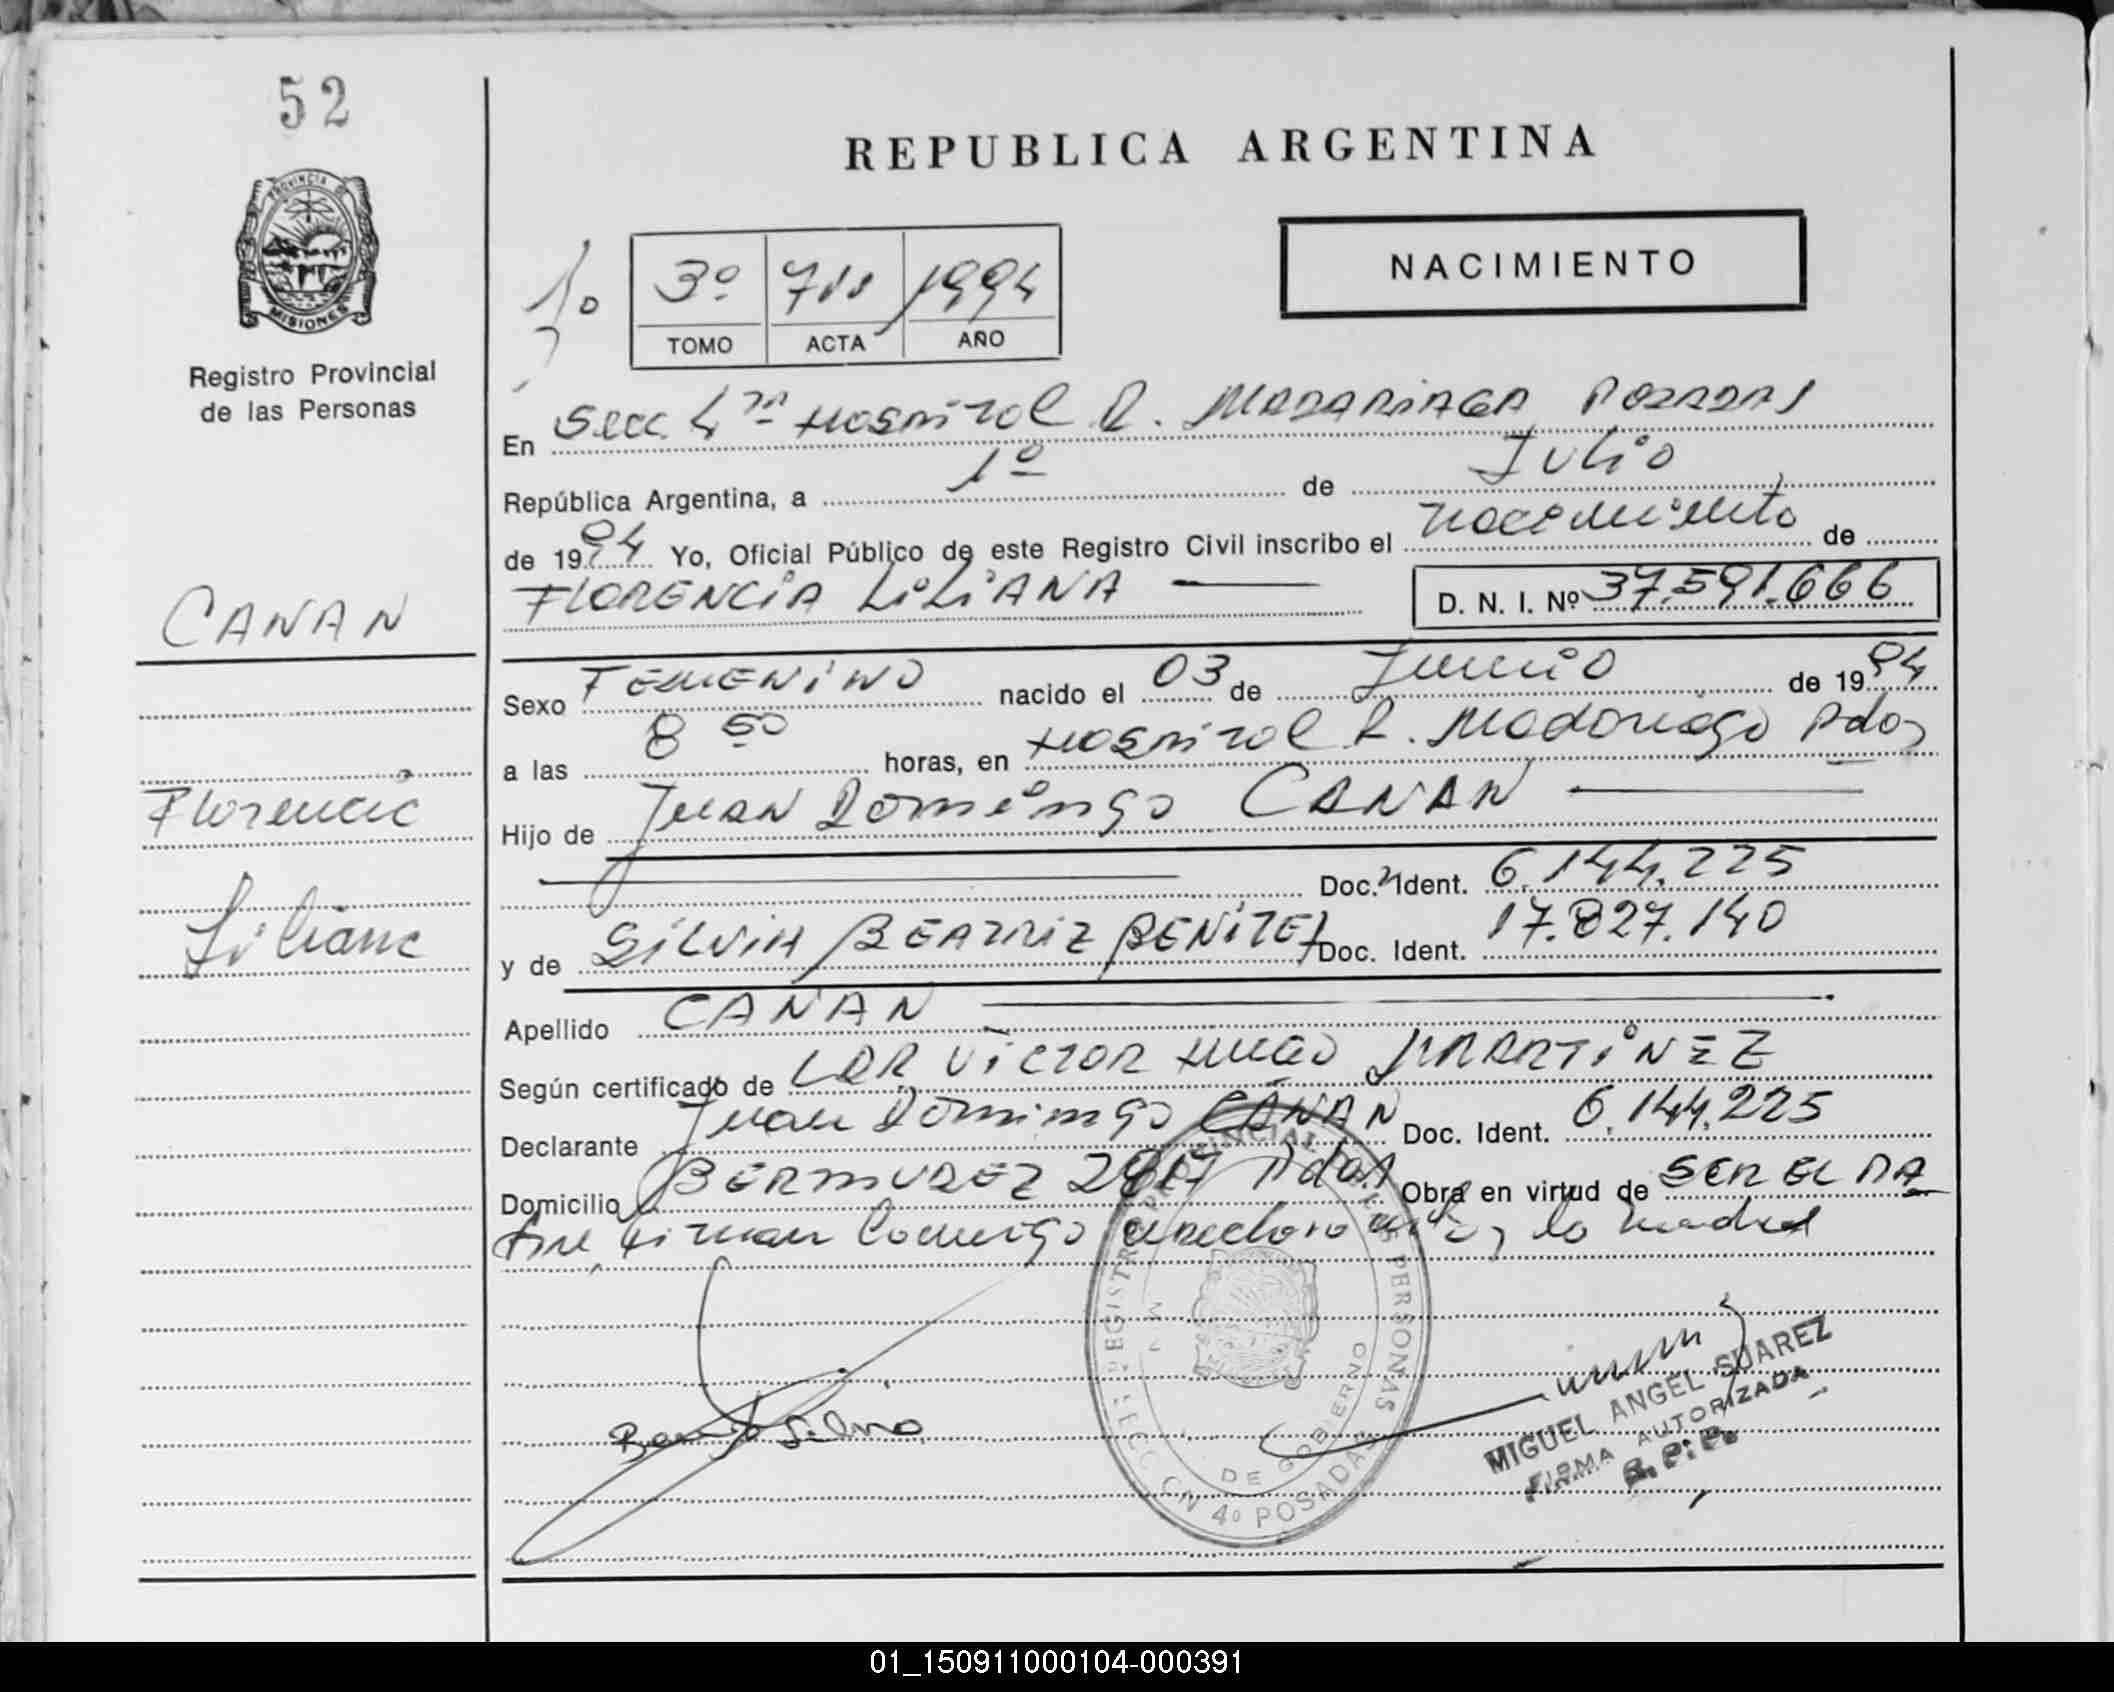 52
REPUBLICA ARGENTINA
PROVINCIA DE
MISIONES
Registro Provincial
de las Personas
NACIMIENTO
3º 711 1994
TOMO ACTA AÑO
En Secc. 4ta Hospital R. MADARIAGA POSADAS
República Argentina, a 1º de Julio
de 1994 Yo, Oficial Público de este Registro Civil inscribo el nacimiento de
FLORENCIA LILIANA
D. N. I. Nº 37.591.666
CANAN
Florencia
Liliana
Sexo FEMENINO nacido el 03 de Junio de 1994
a las 8 50 horas, en Hospital R. Madariaga Pdas
Hijo de Juan Domingo CANAN
Doc. Ident. 6.144.225
y de SILVIA BEATRIZ BENITEZ Doc. Ident. 17.827.140
Apellido CANAN
Según certificado de VICTOR HUGO MARTINEZ
Declarante Juan Domingo CANAN Doc. Ident. 6.144.225
Domicilio BERMUDEZ 2917 Pdas Obra en virtud de SER EL PA
dre, firman conmigo declarante y la madre
REGISTRO PROVINCIAL DE LAS PERSONAS
DE GOBIERNO
SECCION 4º POSADAS
Silvia
MIGUEL ANGEL SUAREZ
FIRMA AUTORIZADA
R.P.P.
01_150911000104-000391